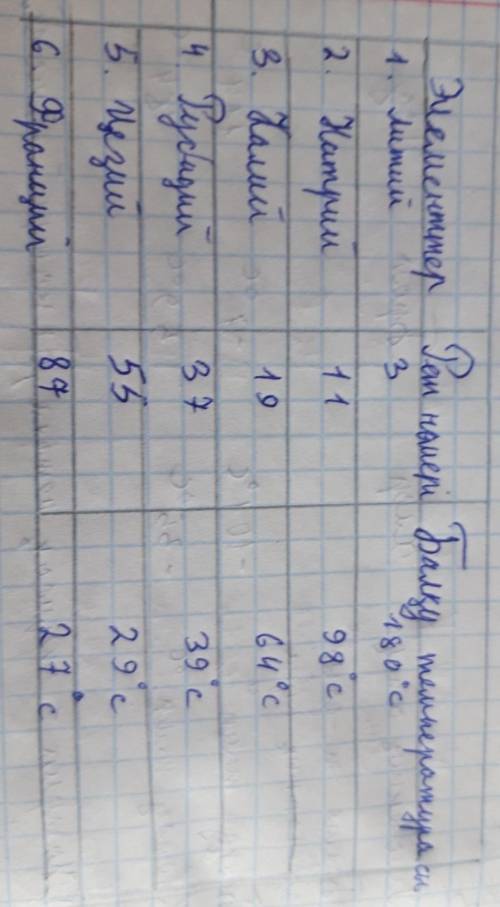 Элементтер Рет номері Балқу температурасы
1. Литий 3 180°с
2. Натрий 11 98°с
3. Калий 19 64°с
4. Рубидий 37 39°с
5. Цезий 55 29°с
6. Франций 87 27°с